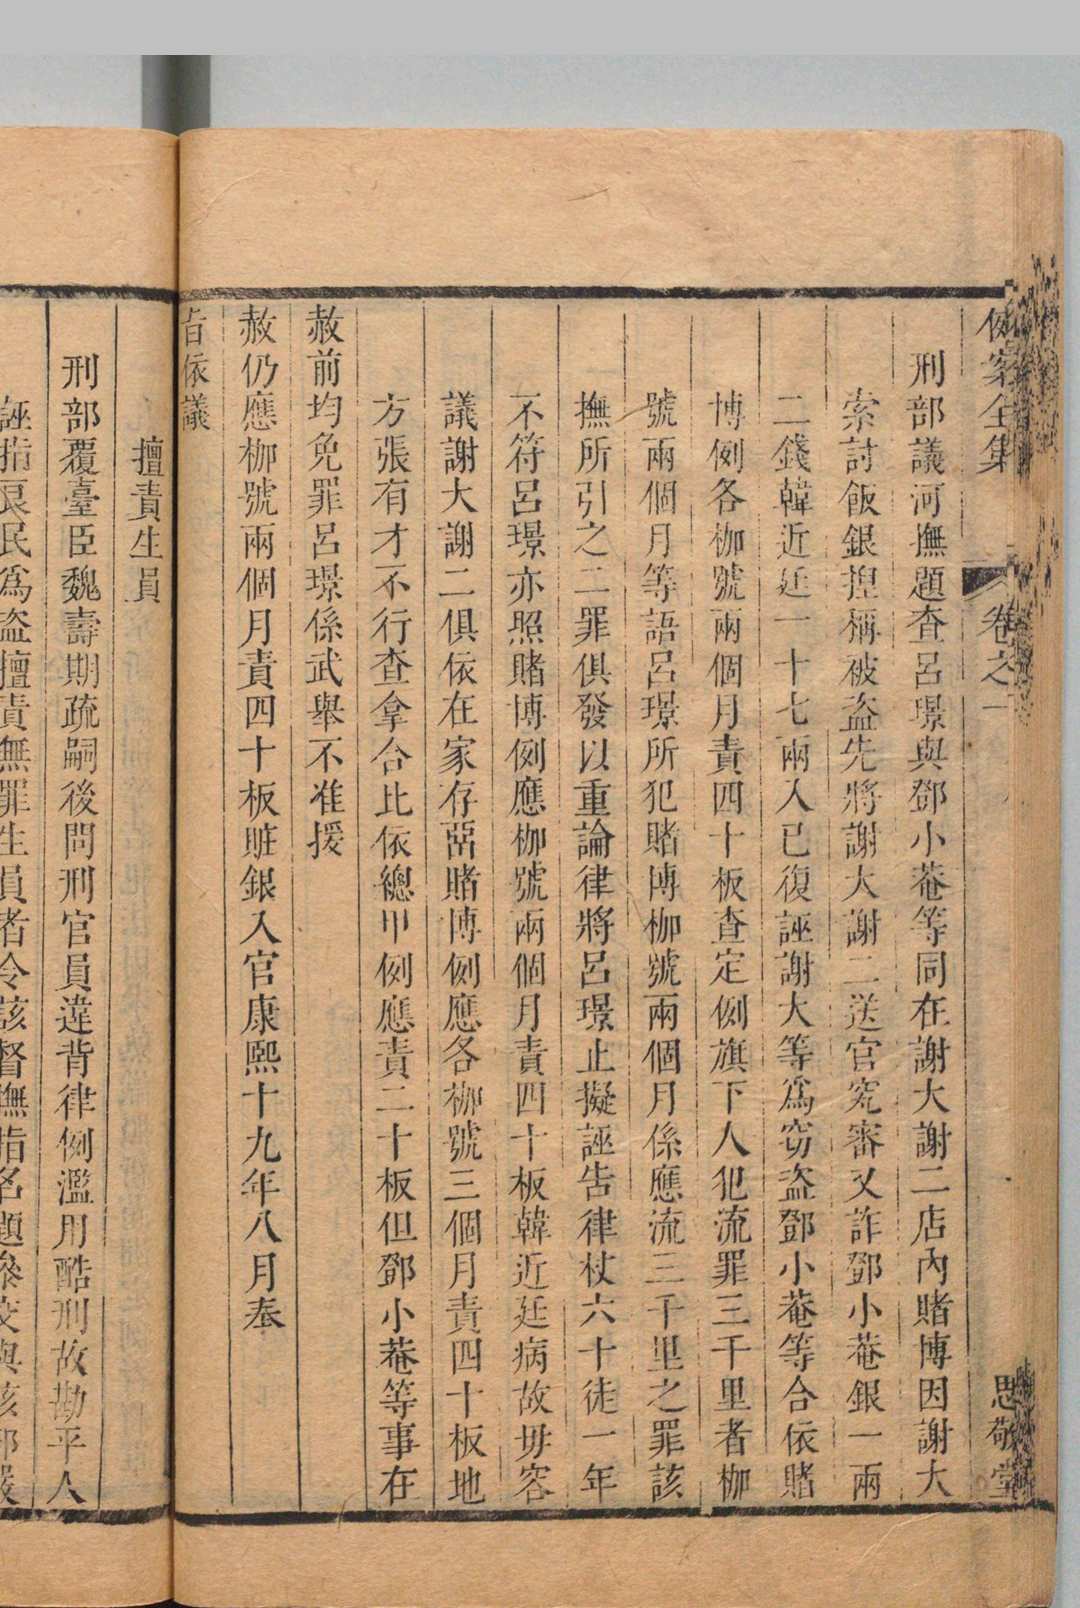 例案全集
卷之一
思敬堂
刑部議河撫題查呂璟與鄧小菴等同在謝大謝二店內賭博因謝大
索討飯銀揑稱被盗先將謝大謝二送官究審又詐鄧小菴銀一兩
二錢韓近廷一十七兩入已復誣謝大等爲窃盗鄧小菴等合依賭
博例各枷號兩個月責四十板查定例旗下人犯流罪三千里者枷
號兩個月等語呂璟所犯賭博枷號兩個月係應流三千里之罪該
撫所引之二罪俱發以重論律將呂璟止擬誣告律杖六十徒一年
不符呂璟亦照賭博例應枷號兩個月責四十板韓近廷病故毋容
議謝大謝二俱依在家存窩賭博例應各枷號三個月責四十板地
方張有才不行查拿合比依總甲例應責二十板但鄧小菴等事在
赦前均免罪呂璟係武舉不准援
赦仍應枷號兩個月責四十板賍銀入官康熙十九年八月奉
旨依議
擅責生員
刑部覆臺臣魏壽期疏嗣後問刑官員違背律例濫用酷刑故勘平人
誣指良民爲盗擅責無罪生員者令該督撫指名題叅交與該部嚴